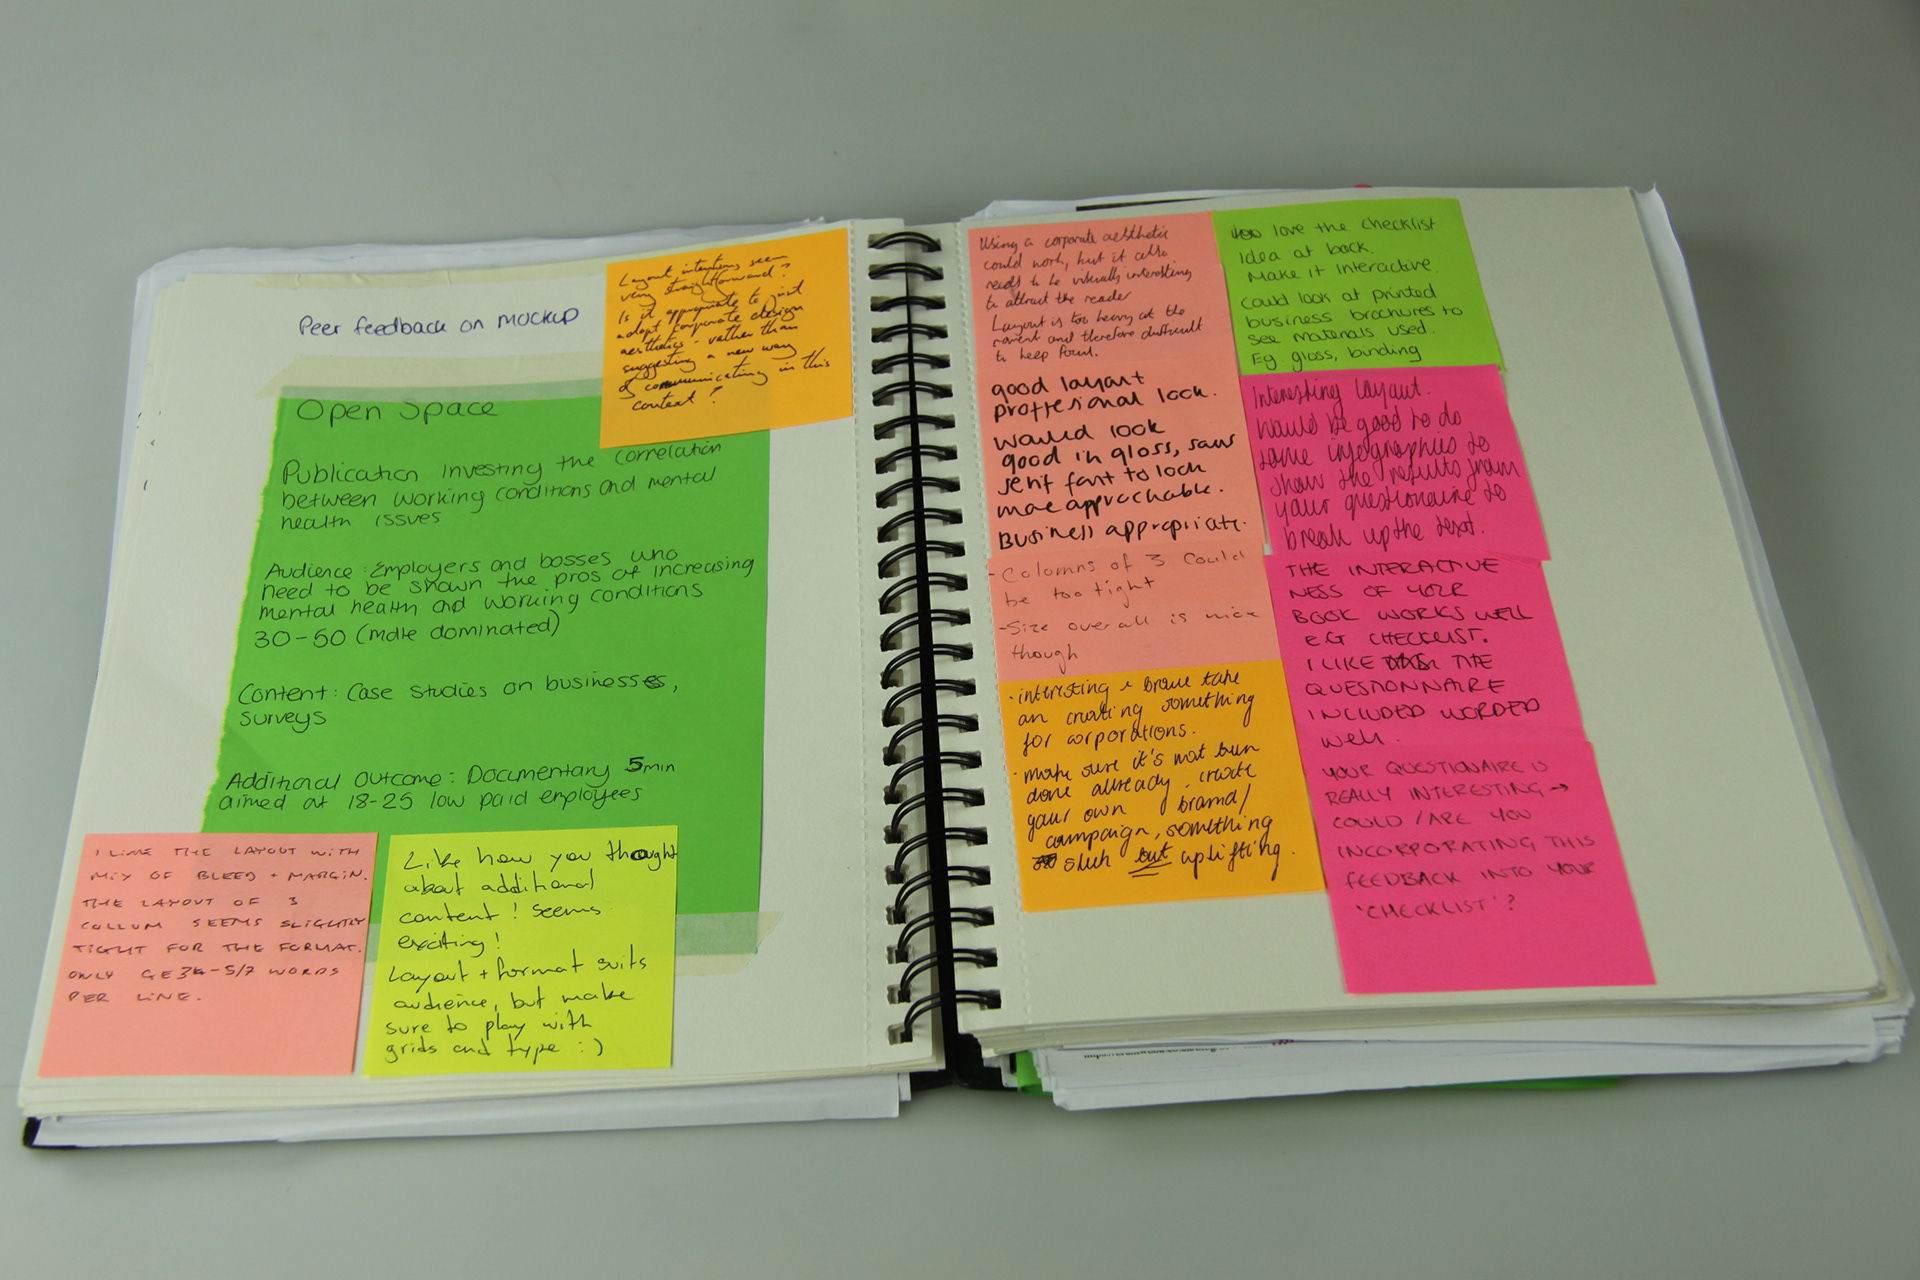 Peer feedback on MOCKUP
Layout intentions seem
very straightforward?
Is it appropriate to just
adopt corporate design
aesthetics - rather than
suggesting a new way
of communicating in this
context?
Open Space
Publication investing the correlation
between working conditions and mental
health issues
Audience: Employers and bosses who
need to be shown the pros of increasing
mental health and working conditions
30-50 (male dominated)
Content: Case studies on businesses,
surveys
Additional Outcome: Documentary 5min
aimed at 18-25 low paid employees
I LIKE THE LAYOUT WITH
MIX OF BLEED + MARGIN.
THE LAYOUT OF 3
COLLUM SEEMS SLIGHTLY
TIGHT FOR THE FORMAT.
ONLY 5/7 WORDS
PER LINE.
Like how you thought
about additional
content! Seems
exciting!
Layout + format suits
audience, but make
sure to play with
grids and type :)
Using a corporate aesthetic
could work, but it also
needs to be visually interesting
to attract the reader
Layout is too heavy at the
moment and therefore difficult
to keep focus.
good layout
proffesional look.
would look
good in gloss, sans
serif font to look
more approachable.
Business appropriate.
- Columns of 3 could
be too tight
- Size overall is nice
though
· interesting & brave take
on creating something
for corporations.
· make sure it's not been
done allready, create
your own brand/
campaign, something
sleek but uplifting.
love the checklist
Idea at back.
Make it interactive.
Could look at printed
business brochures to
see materials used.
Eg. gloss, binding
Interesting layout.
Would be good to do
some infographics to
show the results from
your questionaire to
break up the text.
THE INTERACTIVE
NESS OF YOUR
BOOK WORKS WELL
E.G CHECKLIST.
I LIKE THE
QUESTIONNAIRE
INCLUDED WORDED
WELL.
YOUR QUESTIONAIRE IS
REALLY INTERESTING →
COULD / ARE YOU
INCORPORATING THIS
FEEDBACK INTO YOUR
'CHECKLIST'?